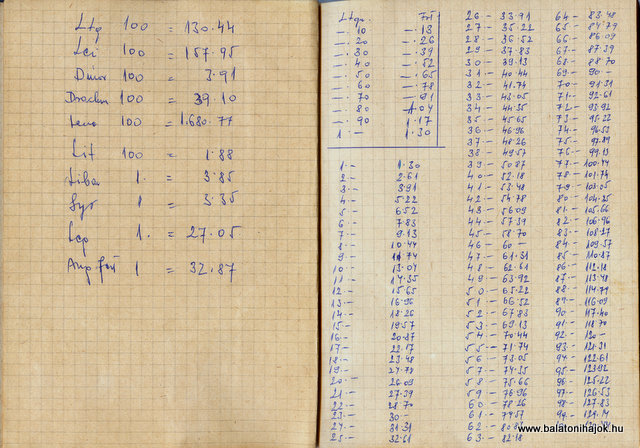 Ltq 100 = 130.44
Lei 100 = 157.95
Dinár 100 = 3.91
Drachm 100 = 39.10
Leva 100 = 1.680.77
Lit 100 = 1.88
1. = 3.85
1 = 3.35
1. = 27.05
1 = 32.87
Ltqs. Frl
—. 10 —.13
—. 20 —.26
—. 30 —.39
—. 40 —.52
—. 50 —.65
—. 60 —.78
—. 70 —.91
—. 80 1.04
—. 90 1.17
1.— 1.30
1.— 1.30
2.— 2.61
3.— 3.91
4.— 5.22
5.— 6.52
6.— 7.83
7.— 9.13
8.— 10.44
9.— 11.74
10.— 13.04
11.— 14.35
12.— 15.65
13.— 16.96
14.— 18.26
15.— 19.57
16.— 20.87
17.— 22.17
18.— 23.48
19.— 24.78
20.— 26.09
21.— 27.39
22.— 28.70
23.— 30.—
24.— 31.31
25.— 32.61
26.— 33.91
27.— 35.22
28.— 36.52
29.— 37.83
30.— 39.13
31.— 40.44
32.— 41.74
33.— 43.05
34.— 44.35
35.— 45.65
36.— 46.96
37.— 48.26
38.— 49.57
39.— 50.87
40.— 52.18
41.— 53.48
42.— 54.78
43.— 56.09
44.— 57.39
45.— 58.70
46.— 60.—
47.— 61.31
48.— 62.61
49.— 63.92
50.— 65.22
51.— 66.52
52.— 67.83
53.— 69.13
54.— 70.44
55.— 71.74
56.— 73.05
57.— 74.35
58.— 75.66
59.— 76.96
60.— 78.26
61.— 79.57
62.— 80.87
63.— 82.18
64.— 83.48
65.— 84.79
66.— 86.09
67.— 87.39
68.— 88.70
69.— 90.—
70.— 91.31
71.— 92.61
72.— 93.92
73.— 95.22
74.— 96.53
75.— 97.89
76.— 99.13
77.— 100.44
78.— 101.74
79.— 103.05
80.— 104.35
81.— 105.66
82.— 106.96
83.— 108.27
84.— 109.57
85.— 110.87
86.— 112.18
87.— 113.48
88.— 114.79
89.— 116.09
90.— 117.40
91.— 118.70
92.— 120.—
93.— 121.31
94.— 122.61
95.— 123.92
96.— 125.22
97.— 126.53
98.— 127.83
99.— 129.14
www.balatonihajok.hu